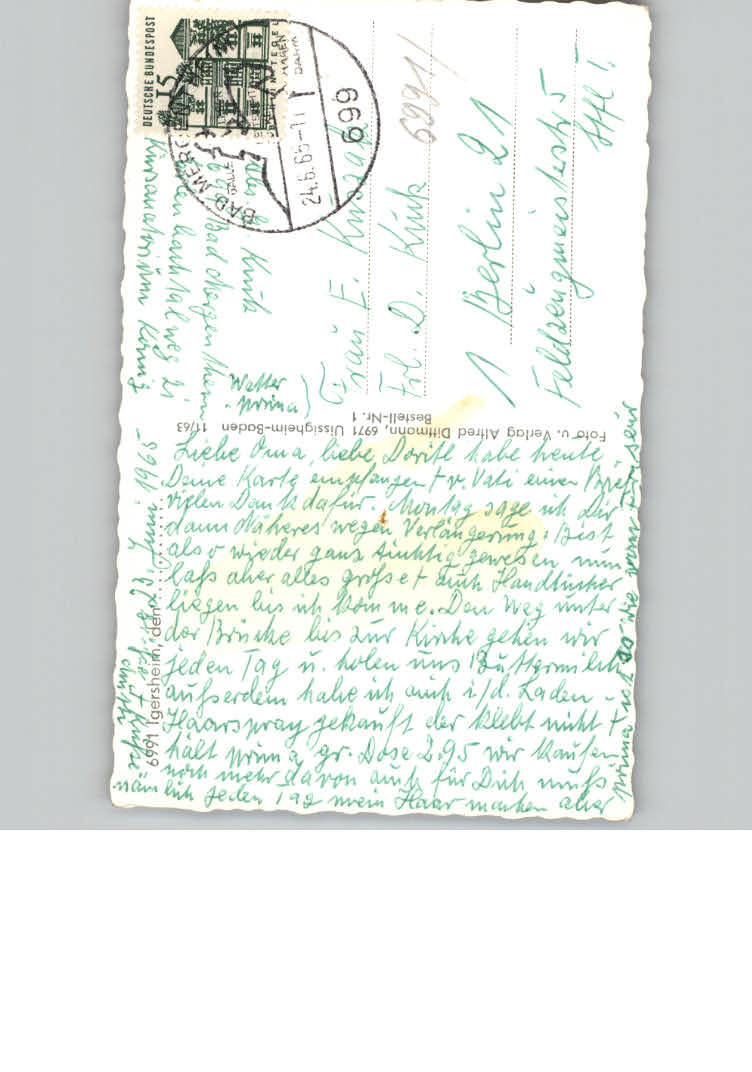 DEUTSCHE BUNDESPOST
15
BAD MERG
24.6.65-11
699
6991
Kük
699 Bad Mergentheim
lochbachtalweg 21
Kursanatorium König
Frau E.
Frl. D. Kük
1 Berlin 21
Feldzeugmeisterstr 5
Wetter
prima
Foto u. Verlag Alfred Dittmann, 6971 Uissigheim-Baden 11/63
Bestell-Nr. 1
6991 Igersheim, den 23. Juni 1965
Liebe Oma, liebe Doritt habe heute
Deine Karte empfangen + v. Vati einen Brief
vielen Dank dafür. Montag sage ich Dir
dann Näheres wegen Verlängerung. Bist
also wieder ganz tüchtig gewesen, nun
laß aber alles größte + auch Handtücher
liegen bis ich komme. Den Weg unter
der Brücke bis zur Kirche gehen wir
jeden Tag u. holen uns Buttermilch
außerdem habe ich auch i/d. Laden
Haarspray gekauft der klebt nicht +
hält prima gr. Dose 2.95 wir kaufen
noch mehr davon auch für Dich muß
nämlich jeden Tag mein Haar machen aber
prima ist so wie vom Friseur